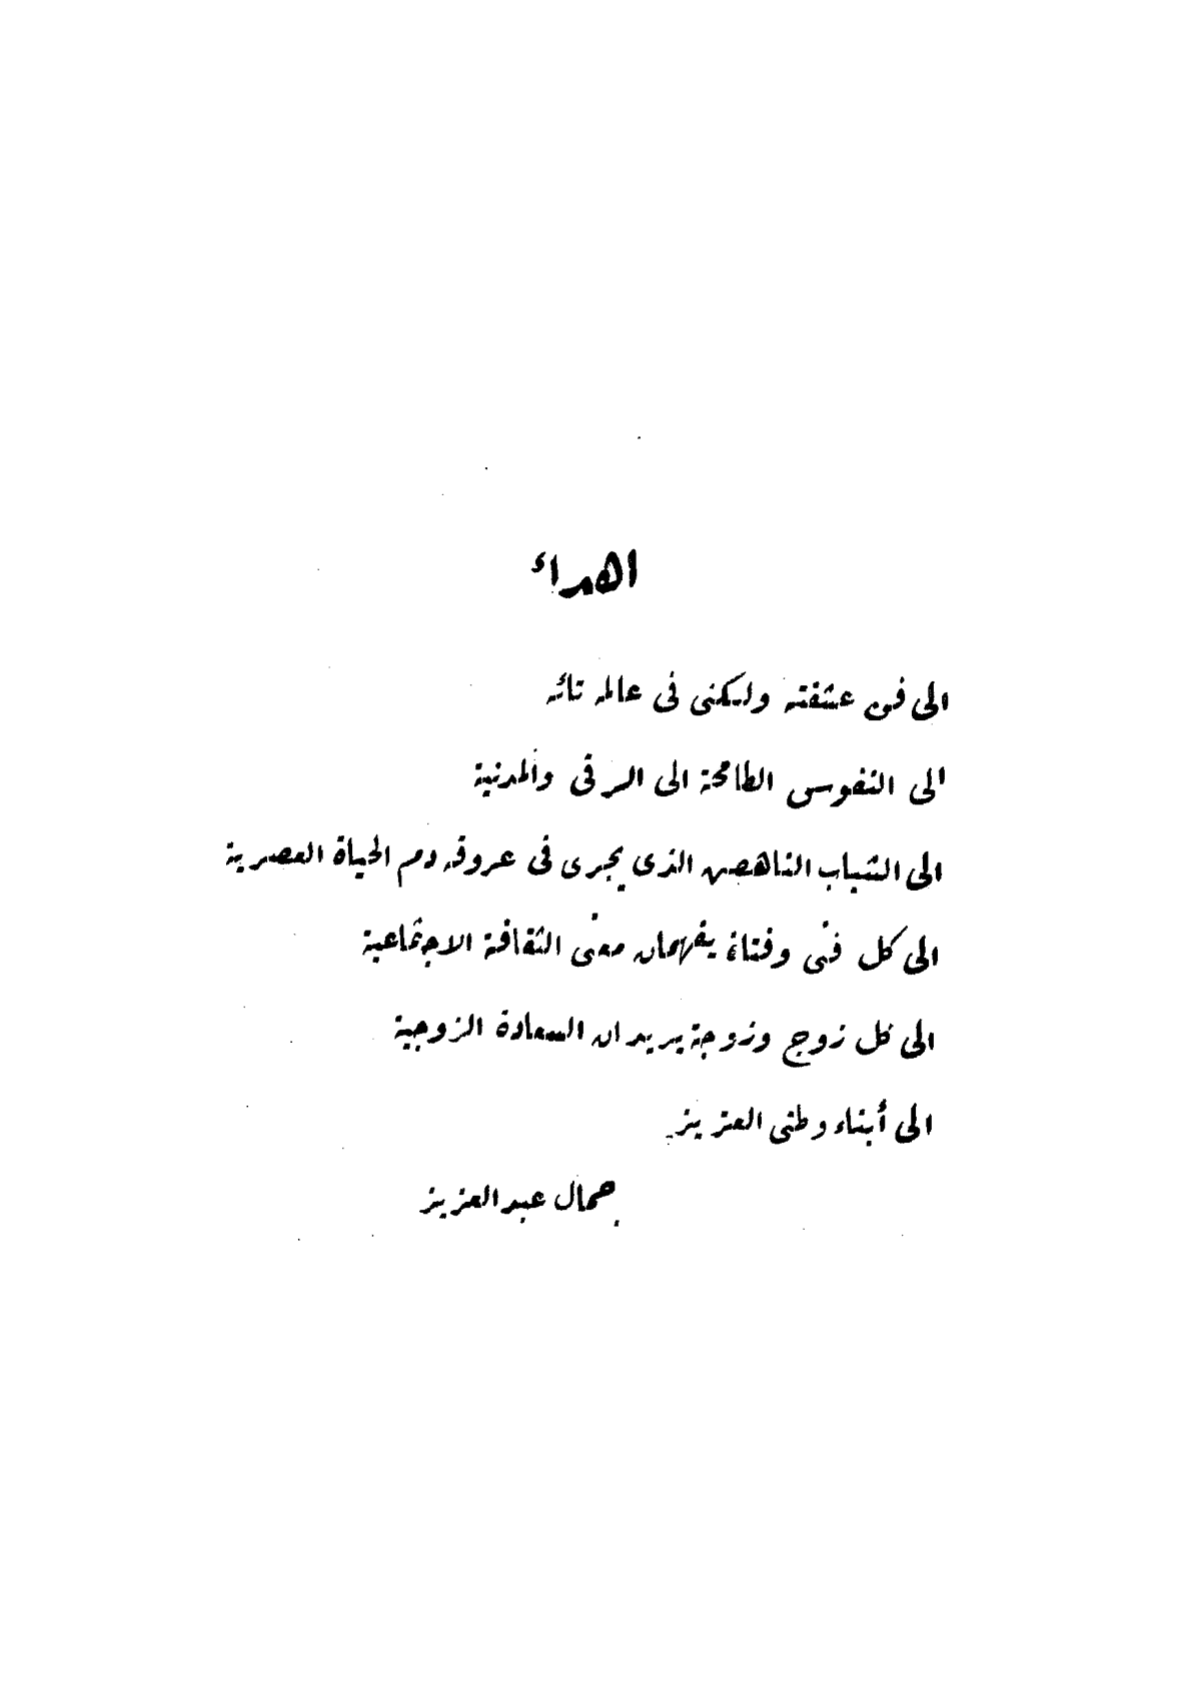 الاهداء
الى فن عشقته ولكنى فى عالمه تائه
الى النفوس الطامحة الى الرقى والمدنية
الى الشباب الناهض الذى يجرى فى عروقه دم الحياة العصرية
الى كل فتى وفتاة يفهمان معنى الثقافة الاجتماعية
الى كل زوج وزوجة يريدان السعادة الزوجية
الى أبناء وطنى العزيز
جمال عبد العزيز